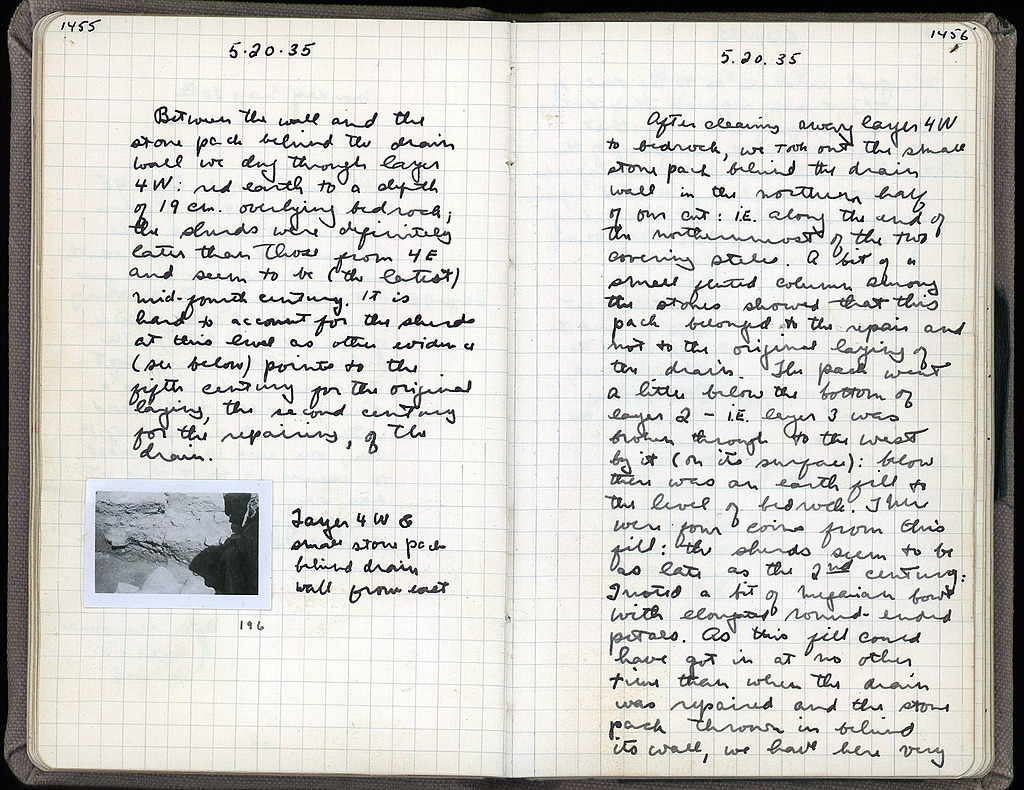 1455
5.20.35
Between the wall and the
stone pack behind the drain
wall we dug through layer
4W: red earth to a depth
of 19 cm. overlying bedrock;
the sherds were definitely
later than those from 4E
and seem to be (the latest)
mid-fourth century. It is
hard to account for the sherds
at this level as other evidence
(see below) points to the
fifth century for the original
laying, the second century
for the repairing, of the
drain.
Layer 4W &
small stone pack
behind drain
wall from east
196
1456
5.20.35
After clearing away layer 4W
to bedrock, we took out the small
stone pack behind the drain
wall in the northern half
of our cut: I.E. along the end of
the northernmost of the two
covering steles. A bit of a
small fluted column among
the stones showed that this
pack belonged to the repair and
not to the original laying of
the drain. The pack went
a little below the bottom of
layer 2 - I.E. layer 3 was
broken through to the west
by it (on its surface): below
there was an earth fill to
the level of bedrock. There
were four coins from this
fill: the sherds seem to be
as late as the 2nd century:
I noted a bit of megarian bowl
with elongated round-ended
petals. As this fill could
have got in at no other
time than when the drain
was repaired and the stone
pack thrown in behind
its wall, we have here very